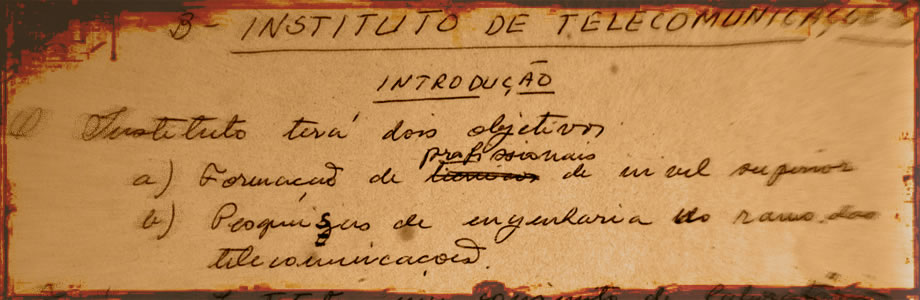 B - INSTITUTO DE TELECOMUNICAÇÕES
INTRODUÇÃO
O Instituto terá dois objetivos
profissionais
a) Formação de de nivel superior
b) Pesquisas de engenharia no ramo das
telecomunicações.